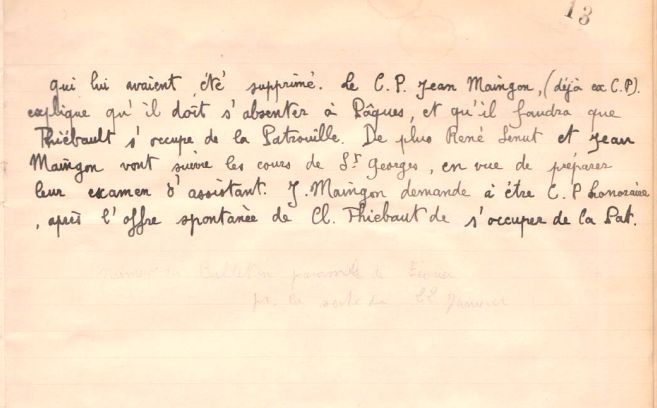 13
qui lui avaient été supprimé. Le C.P. Jean Maingon, (déjà ex C.P).
explique qu'il doit s'absenter à Pâques, et qu'il faudra que
Thiébault s'occupe de la Patrouille. De plus René Lenut et Jean
Maingon vont suivre les cours de St Georges, en vue de préparer
leur examen d'assistant. J. Maingon demande à être C.P honoraire
, après l'offre spontanée de Cl. Thiebaut de s'occuper de la Pat.
Bulletin
22 Janvier